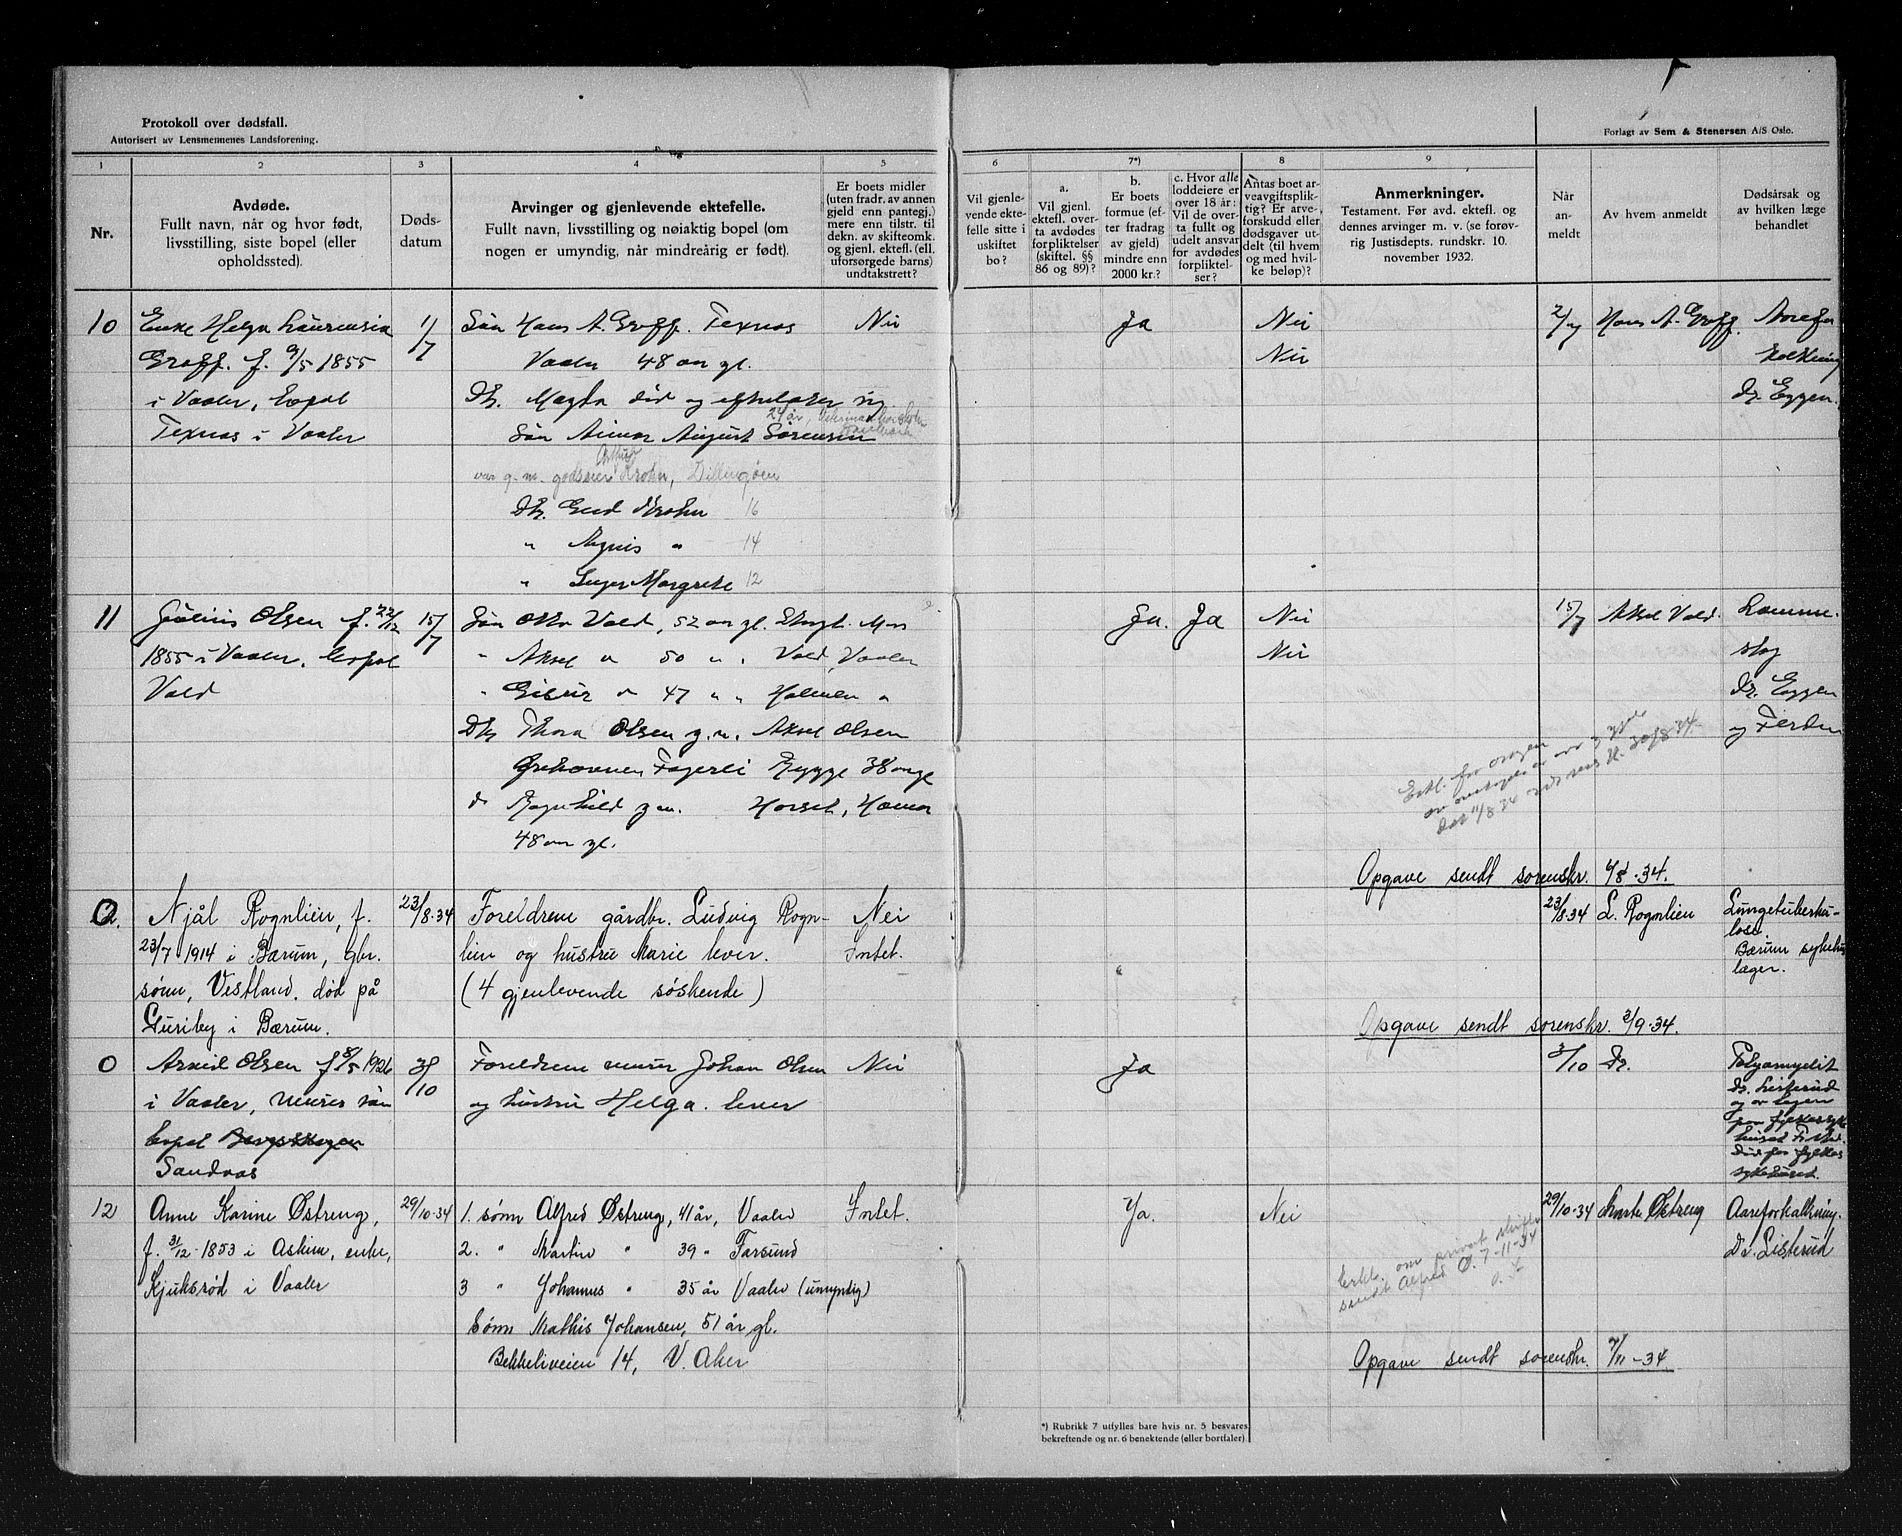 Protokoll over dødsfall.
Autorisert av Lensmennenes Landsforening.
Forlagt av Sem & Stenersen A/S Oslo.
1 2 3 4 5 6 7*) 8 9
Nr.
Avdøde.
Fullt navn, når og hvor født,
livsstilling, siste bopel (eller
opholdssted).
Døds-
datum
Arvinger og gjenlevende ektefelle.
Fullt navn, livsstilling og nøiaktig bopel (om
nogen er umyndig, når mindreårig er født).
Er boets midler
(uten fradr. av annen
gjeld enn pantegj.)
mere enn tilstr. til
dekn. av skifteomk.
og gjenl. ektef. (ell.
uforsørgede barns)
undtakstrett?
Vil gjenle-
vende ekte-
felle sitte i
uskiftet
bo?
a.
Vil gjenl.
ektef. over-
ta avdødes
forpliktelser
(skiftel. §§
86 og 89)?
b.
Er boets
formue (ef-
ter fradrag
av gjeld)
mindre enn
2000 kr.?
c. Hvor alle
loddeiere er
over 18 år:
Vil de over-
ta fullt og
udelt ansvar
for avdødes
forpliktel-
ser?
Antas boet ar-
veavgiftsplik-
tig? Er arve-
forskudd eller
dødsgaver ut-
delt (til hvem
og med hvil-
ke beløp)?
Anmerkninger.
Testament. Før avd. ektefl. og
dennes arvinger m. v. (se forøv-
rig Justisdepts. rundskr. 10.
november 1932.
Når
an-
meldt
Av hvem anmeldt
Dødsårsak og
av hvilken læge
behandlet
10
Enke Helga Laurensia
Groff. f. 9/5 1855
i Vaaler, bopæl
Texnas i Vaaler
1/7
Søn Hans A. Groff. Texnas
Vaaler 48 aar gl.
Dtr. Magda død og efterlater sig
24 år,
Søn Aimar August Sørensen
Arthur
var g. m. godseier Krohn, Dillingøen
Dtr. Gerd Krohn 16
" Agnes " 14
" Inger Margrete 12
Nei
Ja
Nei
Nei
2/7
Hans A. Groff.
Aarefor
kalkning
Dr. Eggen.
11
Julius Olsen f. 22/12
1855 i Vaaler, bopæl
Vold
15/7
Søn Otto Vold, 52 aar gl. Moss
" Aksel " 50 " " Vold, Vaaler
" " 47 " " Holmen "
Dtr Thora Olsen g. m. Aksel Olsen
Fagerli Rygge 38 aar gl
d Ragnhild g. m. Horset, Hamar
48 aar gl.
Ja. Ja
Nei
Nei
15/7
Aksel Vold.
Lamme-
slag
Dr. Eggen
og
Opgave sendt sorenskr. 4/8-34.
12.
Njål Rognlien, f.
23/7 1914 i Bærum, gbr.
sønn, Vestland. død på
i Bærum.
23/8-34
Foreldrene gårdbr. Ludvig Rogn-
lien og hustru Marie lever.
(4 gjenlevende søskende)
Nei
Intet.
23/8-34
L. Rognlien
Lungetuberku-
lose.
Bærum sykehus
læger.
Opgave sendt sorenskr. 3/9-34.
0
Olsen f 8/5 1926
i Vaaler, murer søn
bopæl
Sandvas
3/10
Foreldrene murer Johan Olsen
og hustru Helga. lever
Nei
Ja
3/10
Dr.
Polyamyelit
Dr. Listerud
og av legen
12
Anne Karine Østreng,
f. 31/12-1853 i Askim, enke,
Kjuksrød i Vaaler
29/10-34
1. sønn Alfred Østreng, 41 år, Vaaler
2. " Martin " 39 " Farsund
3 " Johannes " 35 år Vaaler (umyndig)
Sønn Mathis Johansen, 51 år gl.
Bekkeliveien 14, V. Aker
Intet.
Ja.
Nei
Erkl. om privat skifte
sendt Alfred Ø. 7-11-34
29/10-34
Østreng
Aareforkalkning.
Dr. Listerud
Opgave sendt sorenskr. 7/11-34
*) Rubrikk 7 utfylles bare hvis nr. 5 besvares
bekreftende og nr. 6 benektende (eller bortfaler).